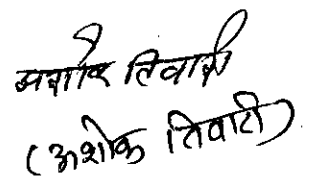 अशोक तिवारी
(अशोक तिवारी)